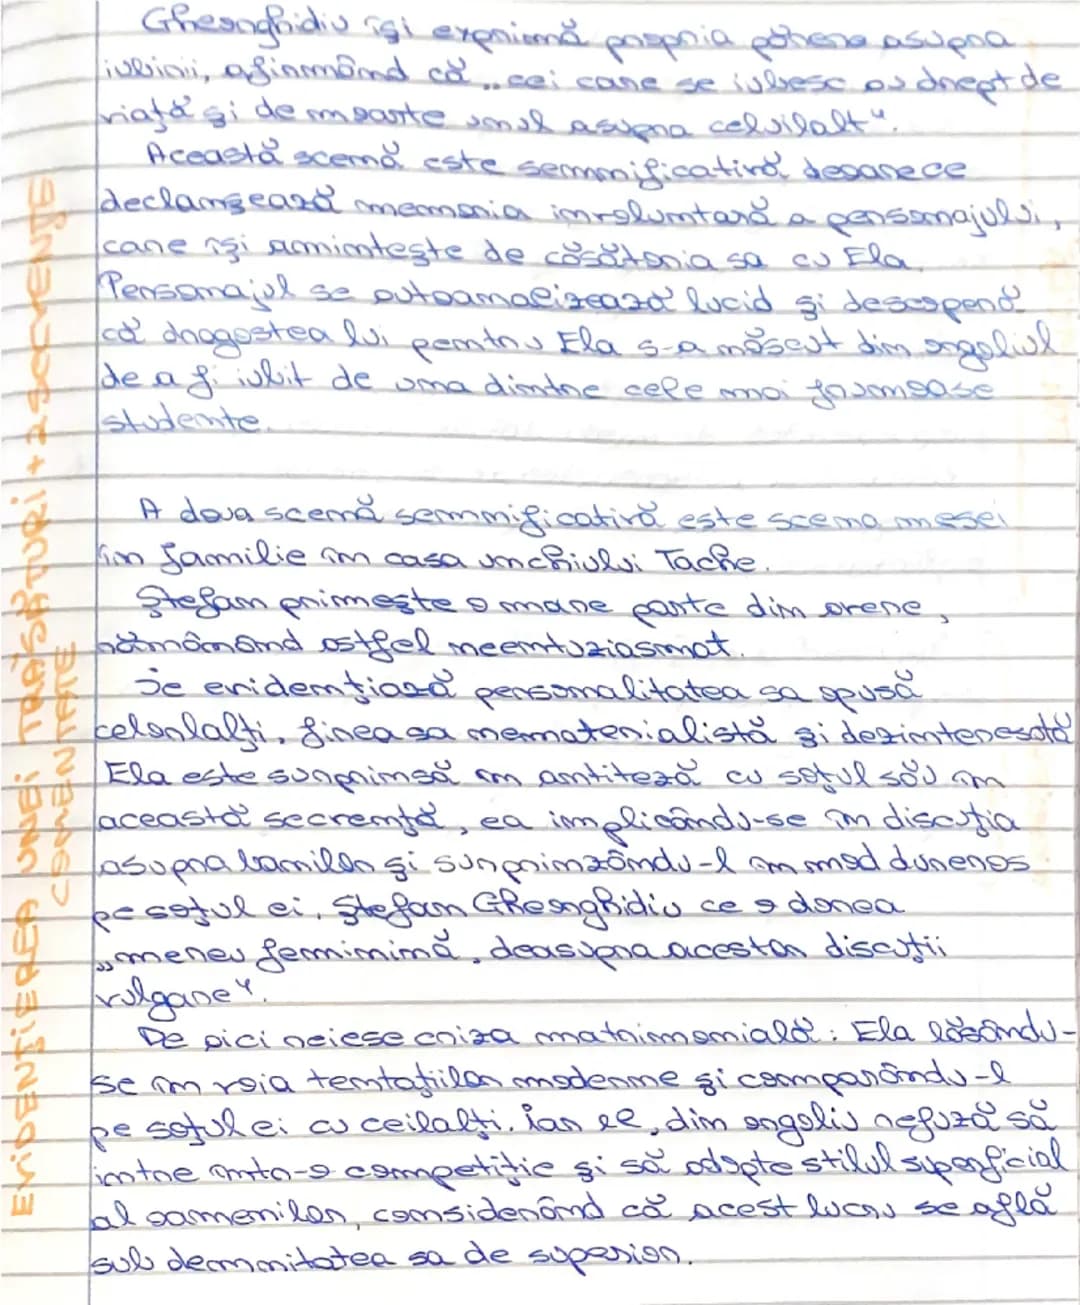 Gheorghidiu își exprimă propria părere asupra
iubirii, afirmând că „cei care se iubesc au drept de
viață și de moarte unul asupra celuilalt".
Această scenă este semnificativă deoarece
declanșează memoria involuntară a personajului,
care își amintește de căsătoria sa cu Ela.
Personajul se autoanalizează lucid și descoperă
că dragostea lui pentru Ela s-a născut din orgoliul
de a fi iubit de una dintre cele mai frumoase
studente.
A doua scenă semnificativă este scena mesei
în familie în casa unchiului Tache.
Ștefan primește o mare parte din avere,
rămânând astfel neentuziasmat.
Se evidențiază personalitatea sa opusă
celorlalți, firea sa nematerialistă și dezinteresată
Ela este surprinsă în antiteză cu soțul său în
această secvență, ea implicându-se în discuția
asupra banilor și surprinzându-l în mod dureros
pe soțul ei, Ștefan Gheorghidiu ce o dorea
„mereu feminină, deasupra acestor discuții
vulgare".
De aici reiese criza matrimonială: Ela lăsându-
se în voia tentațiilor moderne și comparându-l
pe soțul ei cu ceilalți. Iar el, din orgoliu refuză să
intre într-o competiție și să adopte stilul superficial
al oamenilor, considerând că acest lucru se află
sub demnitatea sa de superior.
EVIDENȚIEREA UNEI TRĂSĂTURI + 2 SECVENȚE
COMENTATE